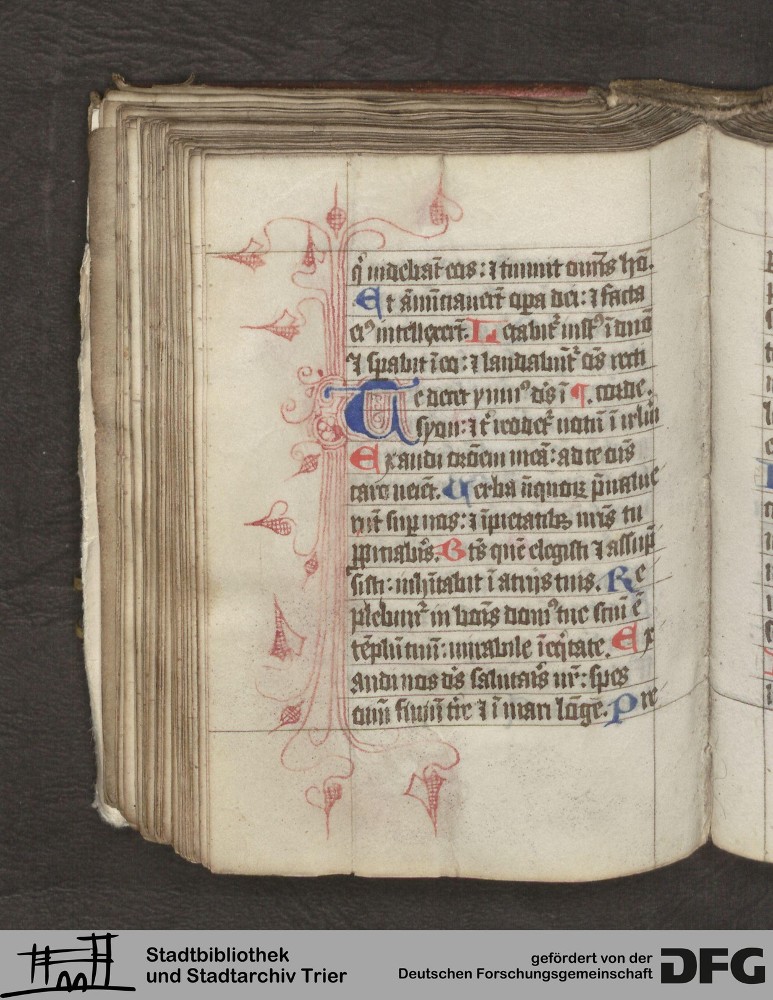 q̄ videbāt eos: ⁊ timuit om̄is hō.
Et ānūciauer̄t op̄a dei: ⁊ facta
ei⁹ intellexer̄t. Letabit᷑ iust⁹ ī dn̄o
⁊ sp̄abit ī eo: ⁊ laudabūt᷑ om̄s recti
Te decet ymn⁹ de⁹ ī ¶ corde.
syon: ⁊ t᷑ reddet᷑ uotū ī ir̄lm̄
Exaudi or̄oem meā: ad te om̄is
caro ueiet. Uerba īiquoꝝ p̄ualue
rūt sup̄ nos: ⁊ īpietatibꝫ nr̄is tu
ꝓpiciab̄is. Bt̄s quē elegisti ⁊ assūp
sisti: inhītabit ī atrijs tuis. Re
plebim᷑ in bonis dom⁹ tue sc̄m ē
tēplū tuū: mirabile ī eq̄tate. Ex
audi nos de⁹ salutar̄is nr̄: spes
om̄iū finiū tr̄e ⁊ ī mari lōge. Pre
Stadtbibliothek
und Stadtarchiv Trier
gefördert von der
Deutschen Forschungsgemeinschaft
DFG